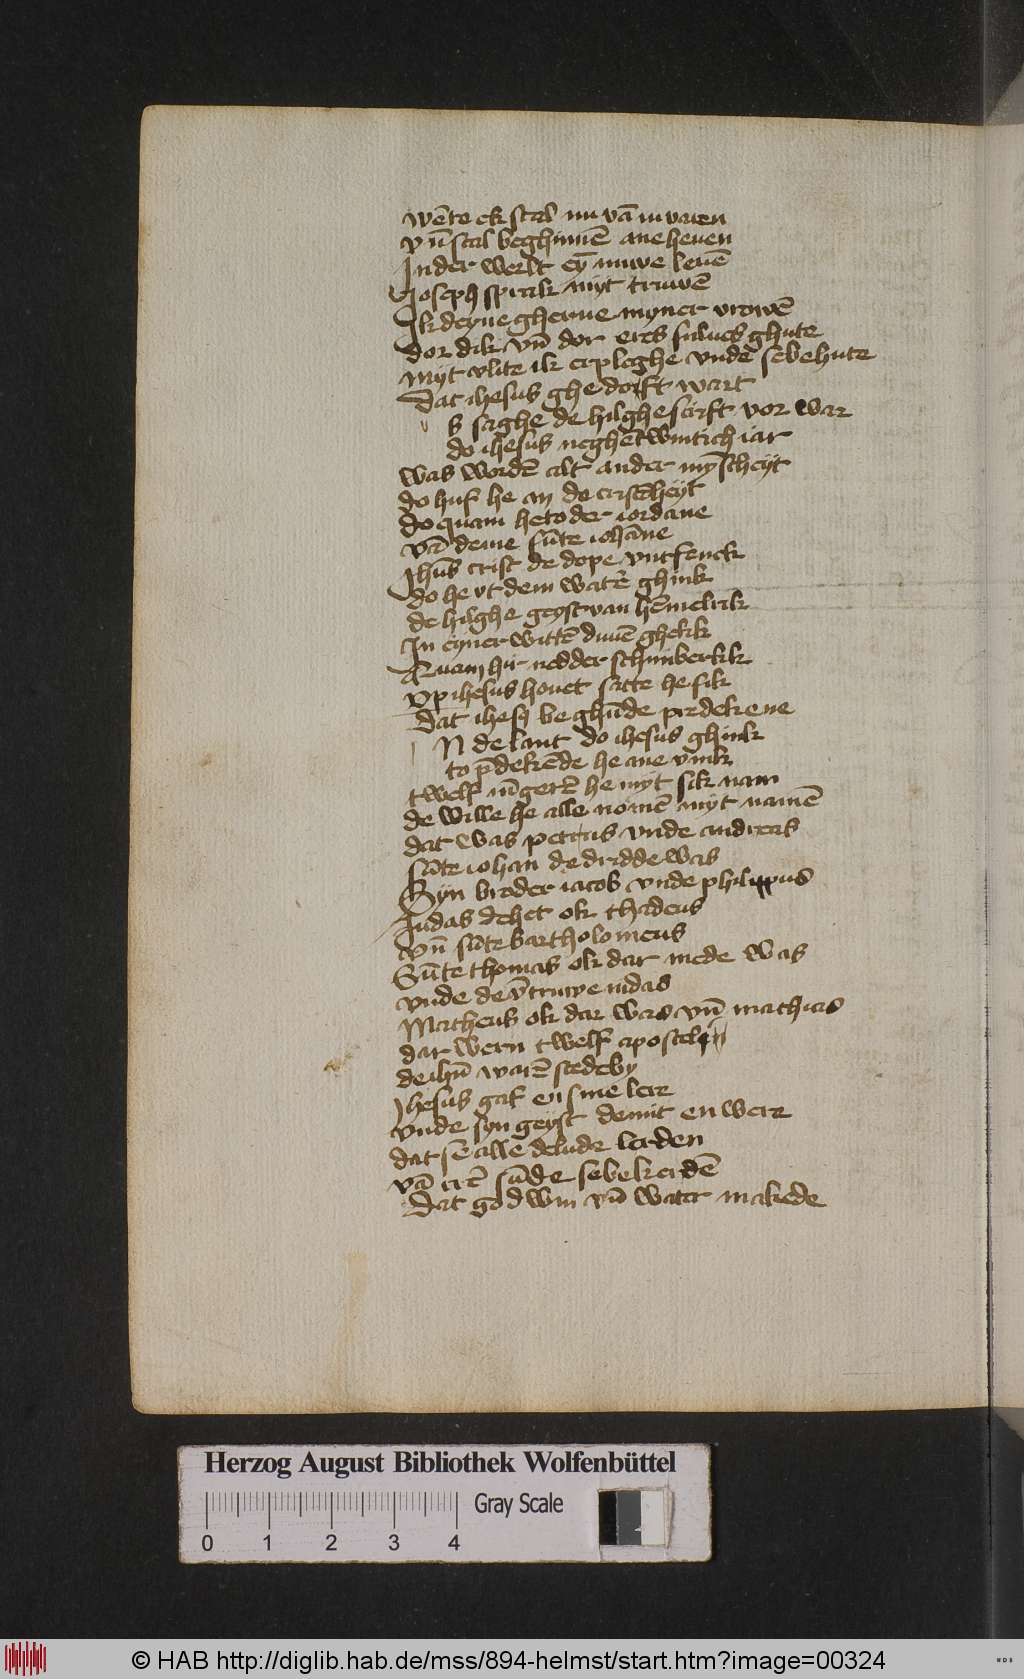 wēte ek scal nu vā iu varen
vn̄ scal beghinnē ane heuen
In der werlt ey nuwe leuē
Joseph sprak myt truwē
Ik deyne gherne myner vrowē
dor dik vn̄ dor eres sulues ghute
myt vlite ik erpleghe vnde se behute
Dat ihesus ghe doft wart
s saghe de hilghe scrift vor war
do ihesus neghētwintich iar
was wordē alt an der mynscheyt
do huf he an de cristēheyt
do quam he to der iordane
vā deme sūte iohāne
Jhūs crist de dope vntfenck
do he vt dem watēr ghink
de hilghe geyst van hēmelrik
In eyner wittē duuē ghelik
Quam hir nedder schinberlik
vp ihesus houet satte he sik
Dat ihesus beghūde predekene
N de lant do ihesus ghink
to p̄dekēde he ane vink
twelf iūgerē he myt sik nam
de wille he alle nomē myt namē
dat was petrus vnde andreas
sūte iohan de dridde was
Syn broder iacob vnde philippus
Judas de het ok thadeus
vn̄ sūte bartholomeus
Sūte thomas ok dar mede was
vnde de v̄truwe iudas
Matheus ok dar was vn̄ mathias
dar wern twelf apostel
de ihū warē stedeby
Jhesus gaf en sine lere
vnde syn geyst de mit en were
dat sē alle de lude lerden
vā erē sūde se bekerdē
Dat god win vn̄ water makede
Herzog August Bibliothek Wolfenbüttel
Gray Scale
0 1 2 3 4
© HAB http://diglib.hab.de/mss/894-helmst/start.htm?image=00324